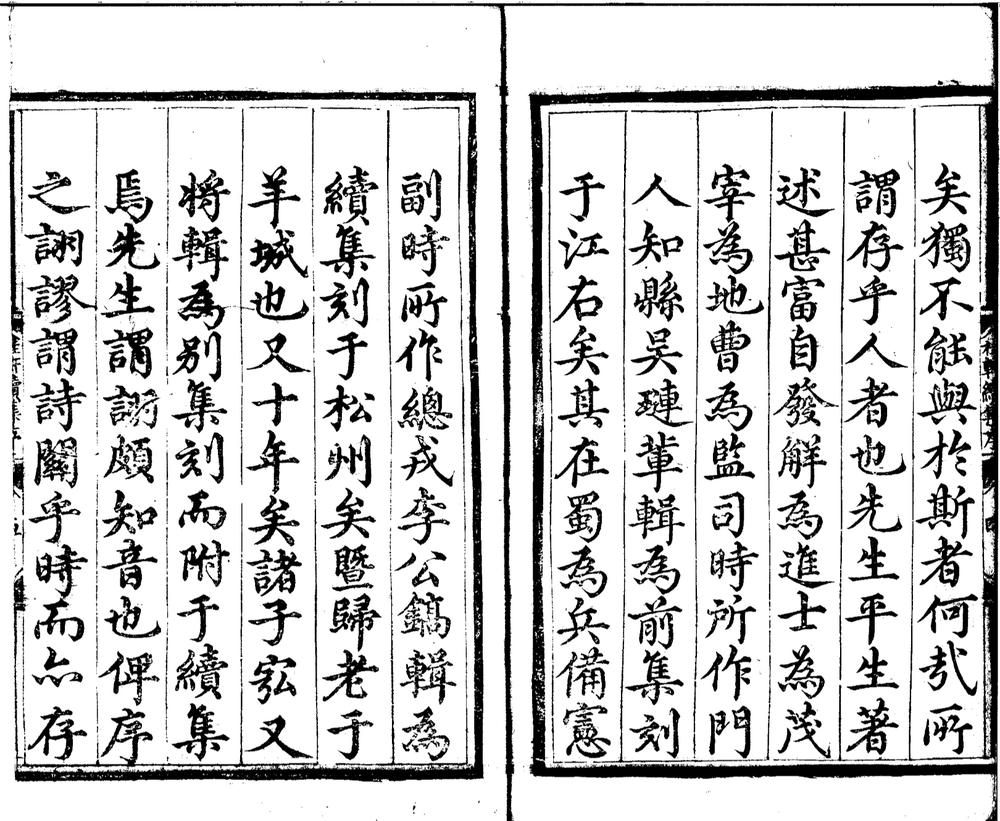 矣獨不能與於斯者何哉所
謂存乎人者也先生平生著
述甚富自發解為進士為茂
宰為地曹為監司時所作門
人知縣吳璉輩輯為前集刻
于江右矣其在蜀為兵備憲
副時所作總戎李公鎬輯為
續集刻于松州矣暨歸老于
羊城也又十年矣諸子宖又
將輯為别集刻而附于續集
焉先生謂詡頗知音也俾序
之詡謬謂詩關乎時而亦存